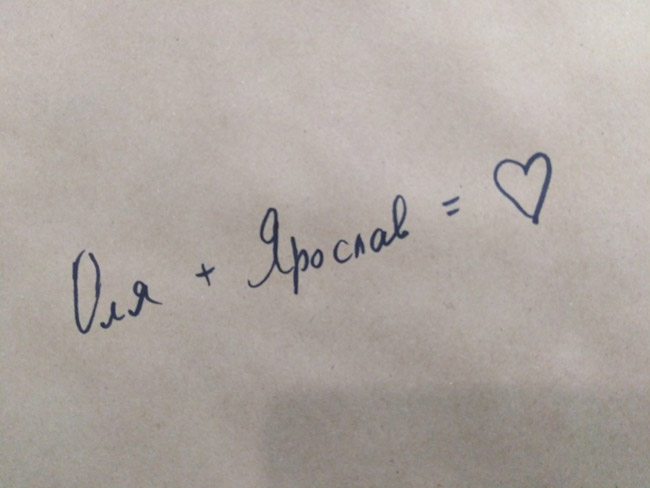 Оля + Ярослав = ♡